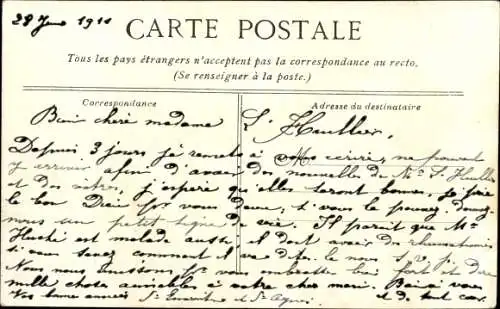 28 1911
CARTE POSTALE
Tous les pays étrangers n'acceptent pas la correspondance au recto.
(Se renseigner à la poste.)
Correspondance
Adresse du destinataire
Bien chère madame L'Huillier,
Depuis 3 jours je remets à écrire, ne pouvant
y arriver afin d'avoir des nouvelle de Mr L'Huillier
et des vôtres, j'espère qu'elles seront bonnes, je prie
le bon Dieu pr vous deux, si vous le pouvez donnez
nous un petit signe de vie. Il parait que Mr
est malade aussi il doit avoir des rhumatismes
si vous savez comment il va dites le nous s. v. p.
Nous nous unissons pr vous embrasser bien fort et dire
mille choses aimables à votre cher mari. Bien à vous
Vos bonnes amies et de tout cœur.